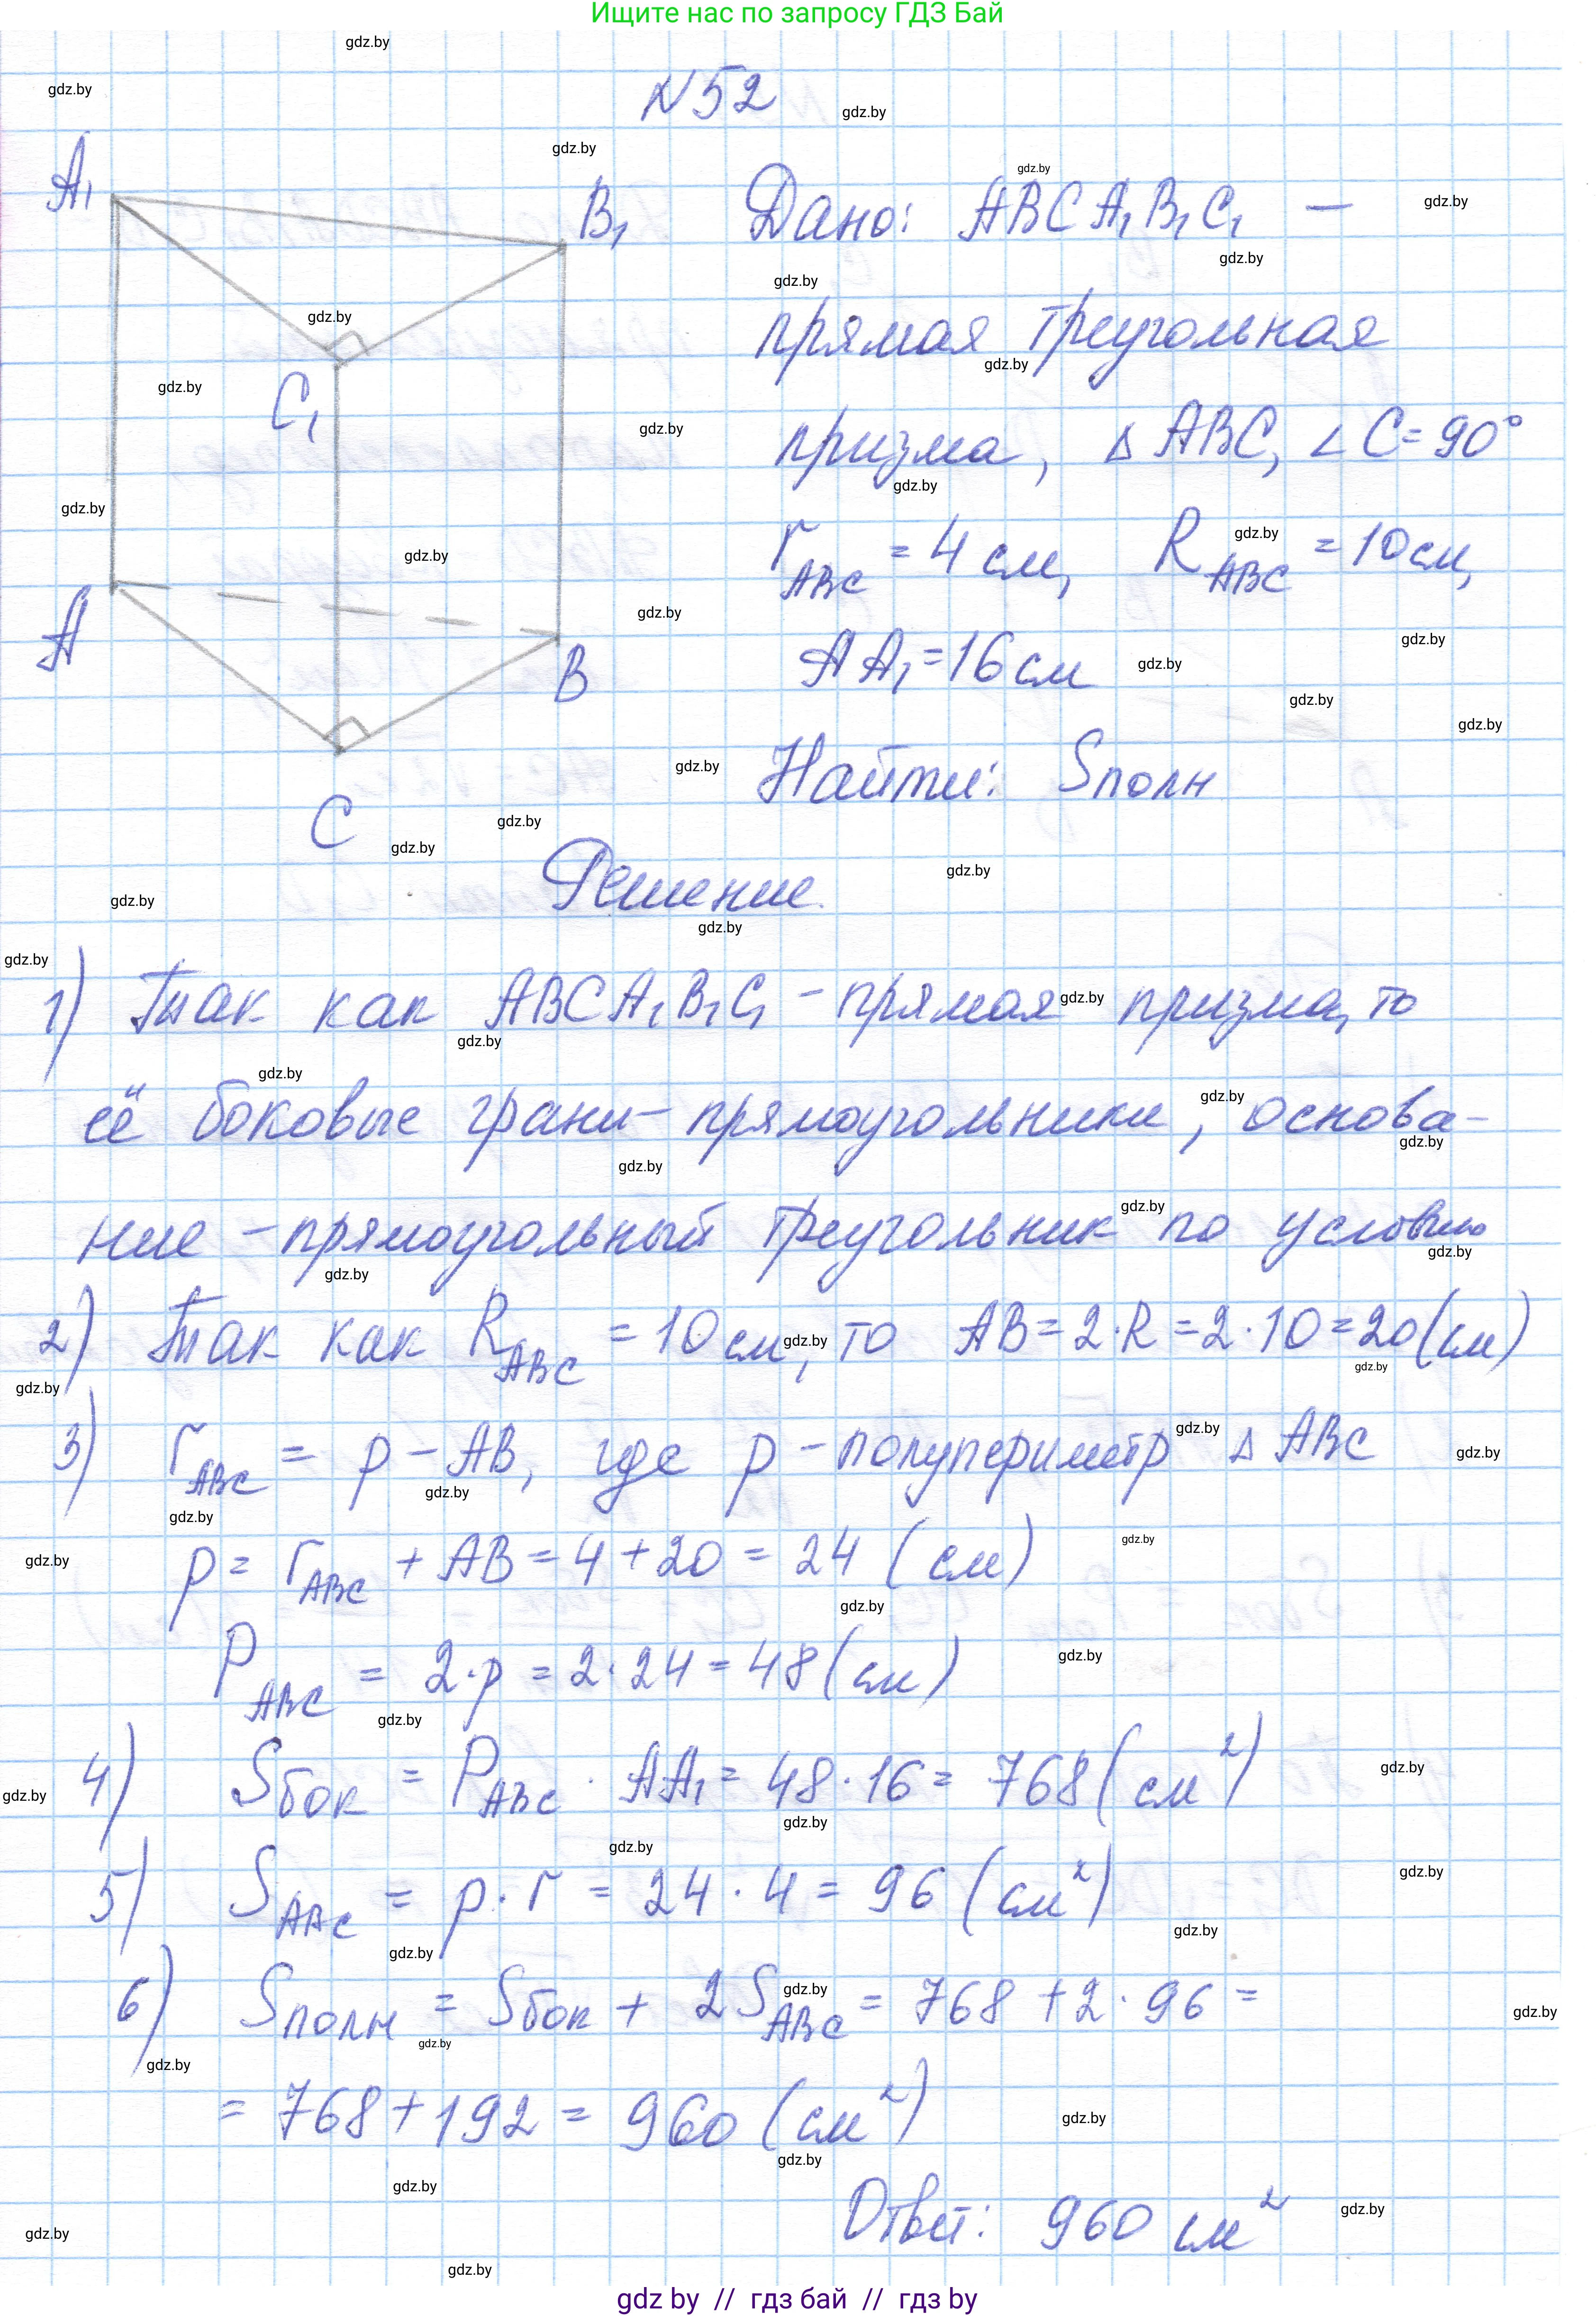 Ищите нас по запросу ГДЗ Бай
N52
A₁
B₁
C₁
A
B
C
Дано: ABCA₁B₁C₁ —
прямая треугольная
призма, ∆ ABC, ∠ C = 90°
r_ABC = 4 см, R_ABC = 10 см,
AA₁ = 16 см
Найти: Sполн
Решение.
1) Так как ABCA₁B₁C₁ - прямая призма, то
её боковые грани - прямоугольники, основа-
ние - прямоугольный треугольник по условию
2) Так как R_ABC = 10 см, то AB = 2·R = 2·10 = 20 (см)
3) r_ABC = p - AB, где p - полупериметр ∆ ABC
p = r_ABC + AB = 4 + 20 = 24 (см)
P_ABC = 2·p = 2·24 = 48 (см)
4) Sбок = P_ABC · AA₁ = 48·16 = 768 (см²)
5) S_ABC = p·r = 24·4 = 96 (см²)
6) Sполн = Sбок + 2S_ABC = 768 + 2·96 =
= 768 + 192 = 960 (см²)
Ответ: 960 см²
gdz by // гдз бай // гдз by